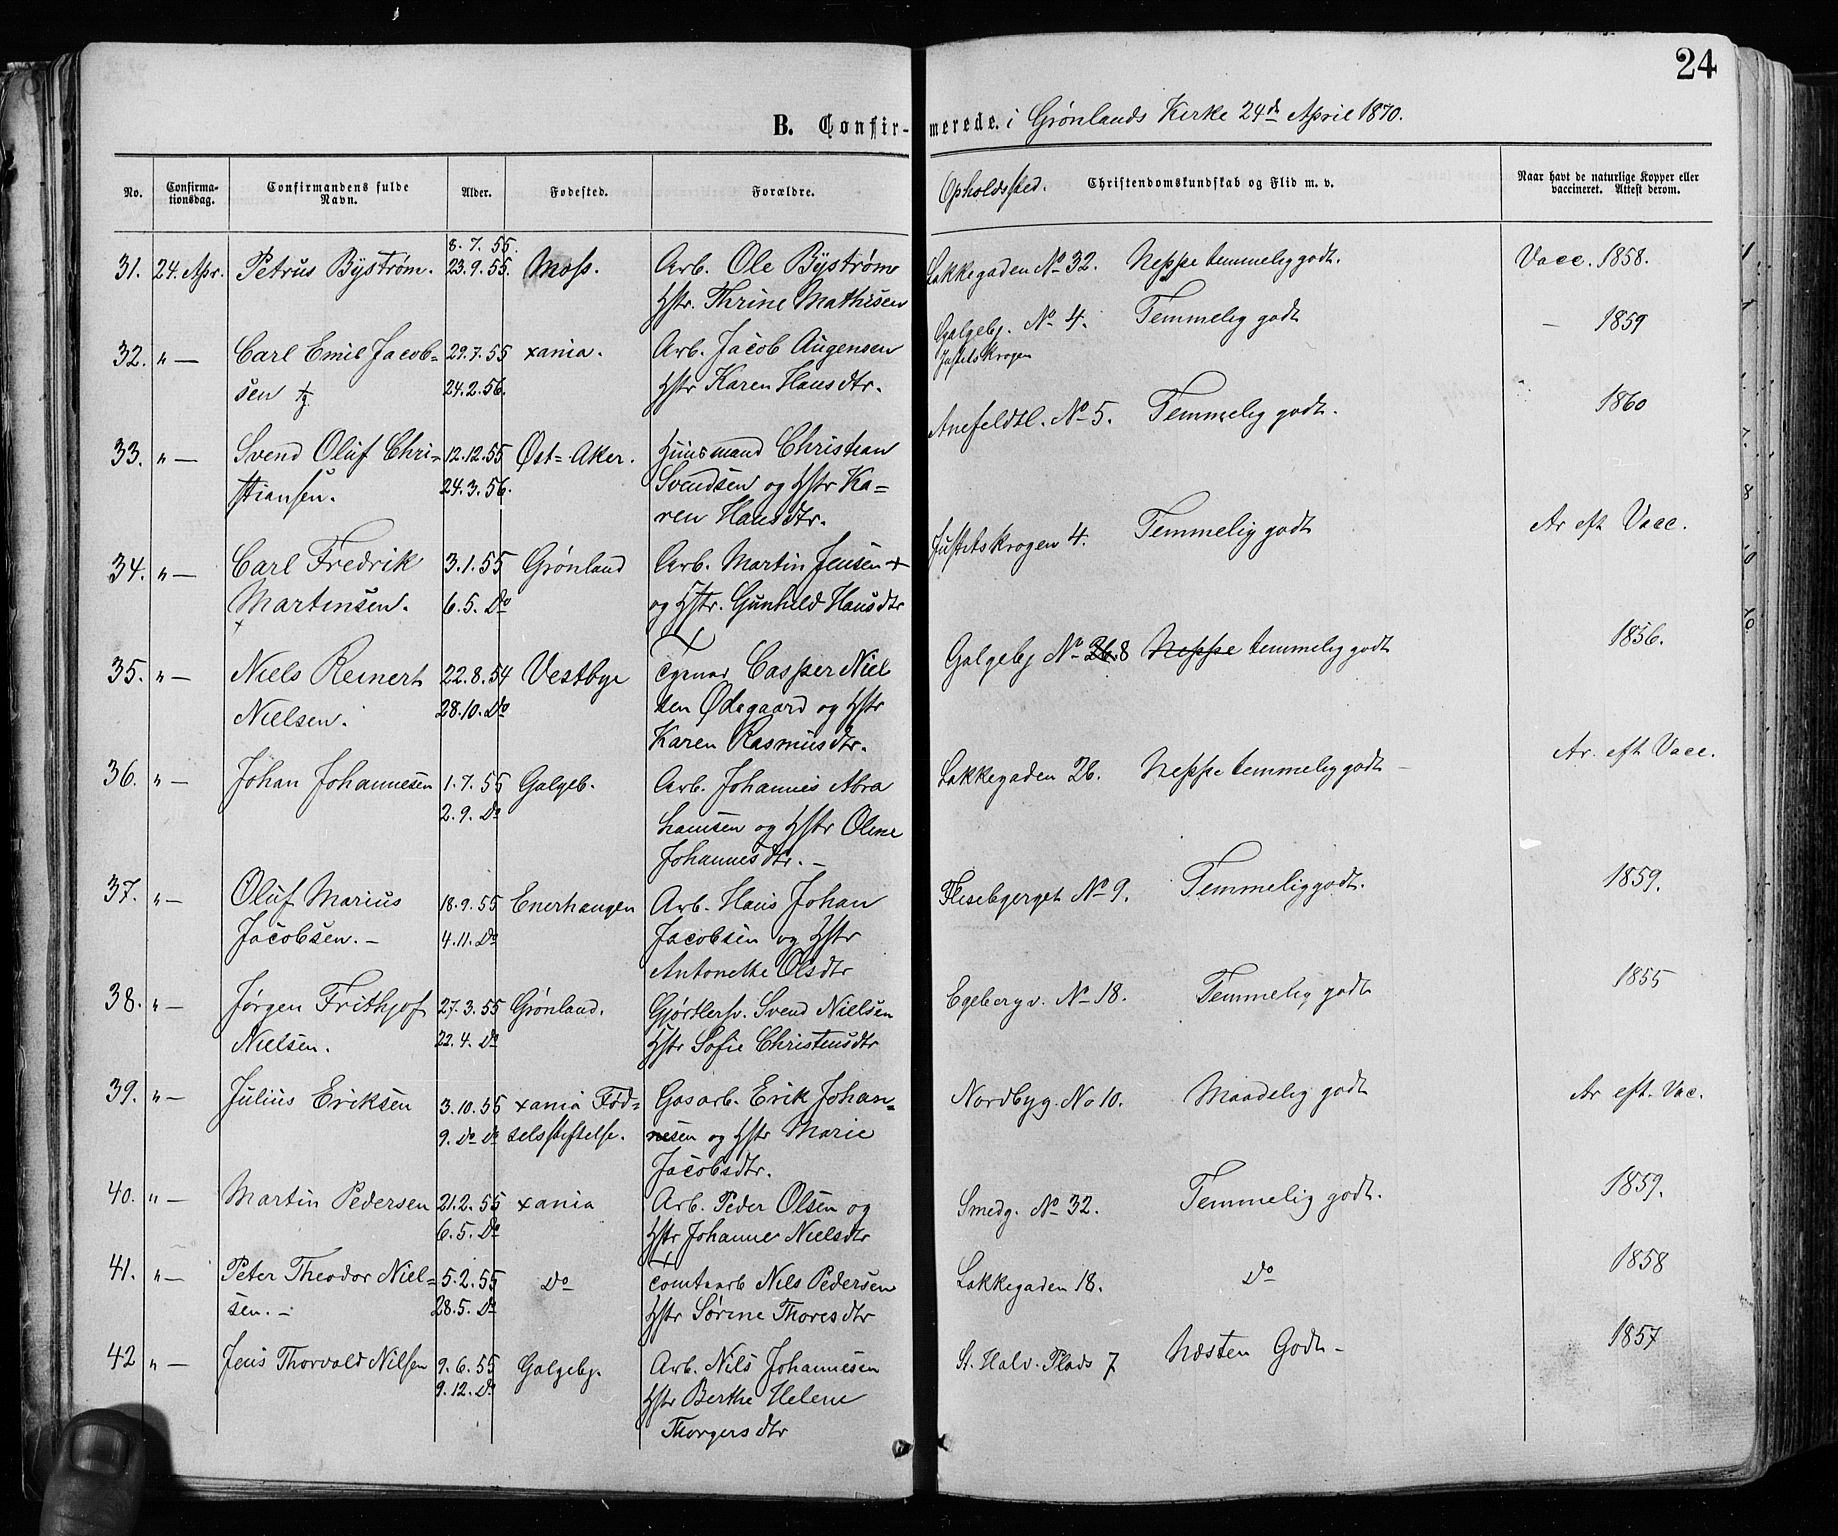 24
B. Confir- merede. i Grønlands Kirke 24de April 1870.
No. Confirma-tionsdag. Confirmandens fulde Navn. Alder. Fødested. Forældre. Opholdssted. Christendomskundskab og Flid m. v. Naar havt de naturlige Kopper eller vaccineret. Attest derom.
8. 7. 55.
31. 24. Apr. Petrus Byström. 23.9.55. Moss. Arb. Ole Byströme Lakkegaden No 32. Neppe temmelig godt. Vacc. 1858.
Hstr. Thrine Mathisen
Galgebj. No 4. Temmelig godt – 1859
32. " — Carl Emil Jacob= 29.7.55 xania. Arb. Jacob Augensen Justitskrogen
sen 24.2.56. Hstr Karen Hansdtr.
Anefeldtl. No 5. Temmelig godt. 1860
33. " — Svend Oluf Chri= 12.12.55 Øst=Aker. Huusmand Christian
stiansen. 24.3.56. Svendsen og Hstr Ka=
ren Hansdtr.
Justitskrogen 4. Temmelig godt Ar eft Vacc.
34. " — Carl Fredrik 3.1.55 Grønland Arb. Martin Jensen +
Martinsen. 6.5. Do og Hstr. Gunhild Hansdtr
x
35. " — Niels Reinert 22.8.54 Vestbye Casper Niel Galgebj No 26. 8 Neppe temmelig godt 1856.
Nielsen. 28.10. Do sen Ødegaard og Hstr
Karen Rasmusdtr.
36. " — Johan Johannesen 1.7.55 Galgeb. Arb. Johannes Abra Lakkegaden 26. Neppe temmelig godt – Ar. eft Vacc.
2.9. Do hamsen og Hstr Oline
Johannesdtr. –
37. " — Oluf Marius 18.9.55 Enerhaugen Arb. Hans Johan Flisebjerget No 9. Temmelig godt. 1859.
Jacobsen. – 4.11. Do Jacobsen og Hstr
Antonette Olsdtr
38. " — Jørgen Frithjof 27.3.55 Grønland. Gjørtlersv. Svend Nielsen Egebergv. No 18. Temmelig godt 1855
Nielsen. 22.4. Do Hstr Sofie Christensdtr
39. " — Julius Eriksen 3.10.55 xania Fød= Gasarb. Erik Johan= Nordbyg. No 10. Maadelig godt Ar eft. Vac.
9. Do Do selsstiftelse. nesen og Hstr Marie
Jacobsdtr.
40. " — Martin Pedersen 21.2.55 xania Arb. Peder Olsen og Smedg. No 32. Temmelig godt. 1859.
6.5. Do Hstr Johanne Nielsdtr
41. " — Peter Theodor Niel= 5.2.55 Do Nils Pedersen Lakkegaden 18. Do 1858
sen. – 28.5. Do Hstr Sørine Thoresdtr
42 " — Jens Thorvald Nilsen 9.6.55 Galgebj. Arb. Nils Johannesen St. Halv. Plads 7 Næsten Godt – 1857
9.12. Do Hstr Berthe Helene
Thorgersdtr